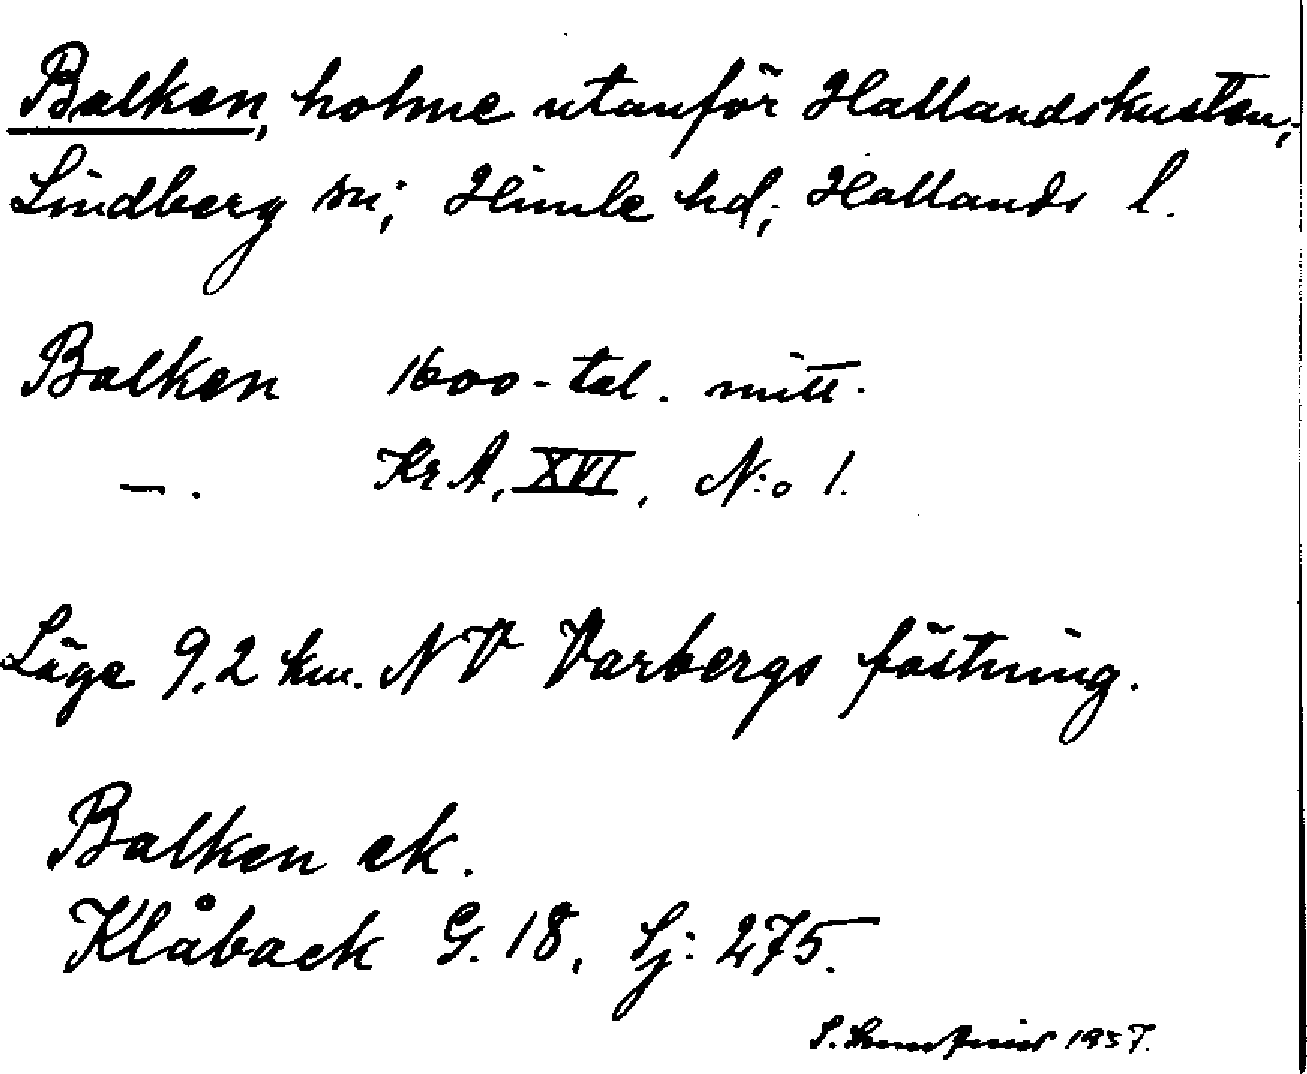 Balken, holme utanför Hallandskusten,
Lindberg sn; Himle hd; Hallands l.
Balken 1600-tal. mitt.
—. KrA, XVI, N:o 1.
Läge 9.2 km. NV Varbergs fästning.
Balken ek.
Klåback G. 18, Sj: 275.
S. 1957.